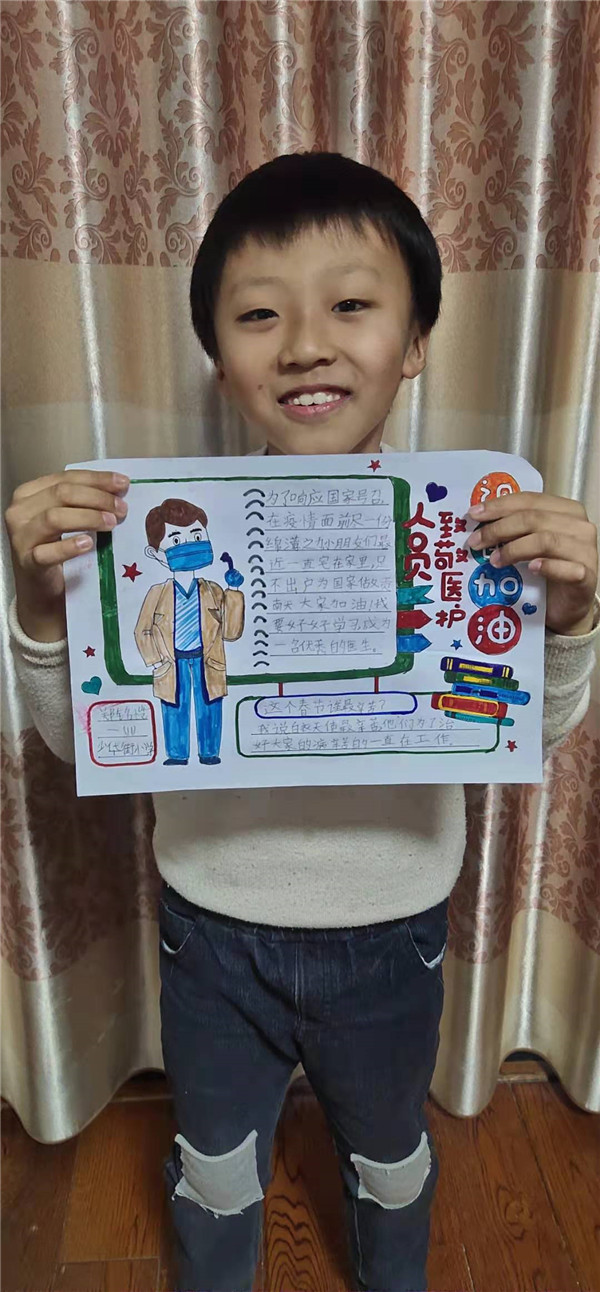 为了响应国家号召
在疫情面前尽一份
绵薄之力小朋友们最
近一直宅在家里,足
不出户为国家做贡
献大家加油!我
要好好学习成为
一名优秀的医生。
致敬医护
人员
加
油
这个春节谁最辛苦?
我说白衣天使最辛苦他们为了治
好大家的病毒的一直在工作。
少华街小学